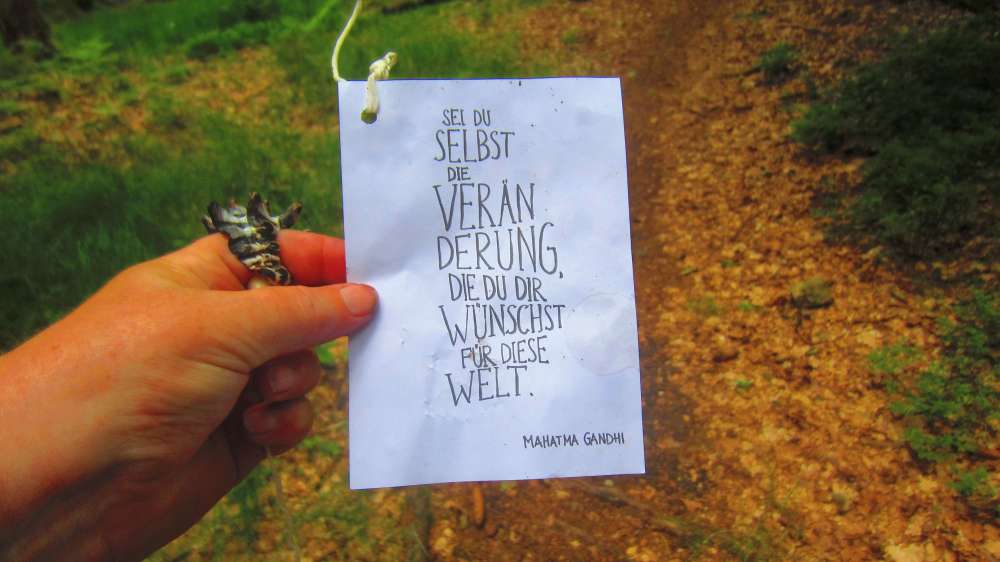 SEI DU
SELBST
DIE
VERÄN
DERUNG,
DIE DU DIR
WÜNSCHST
FÜR DIESE
WELT.
MAHATMA GANDHI